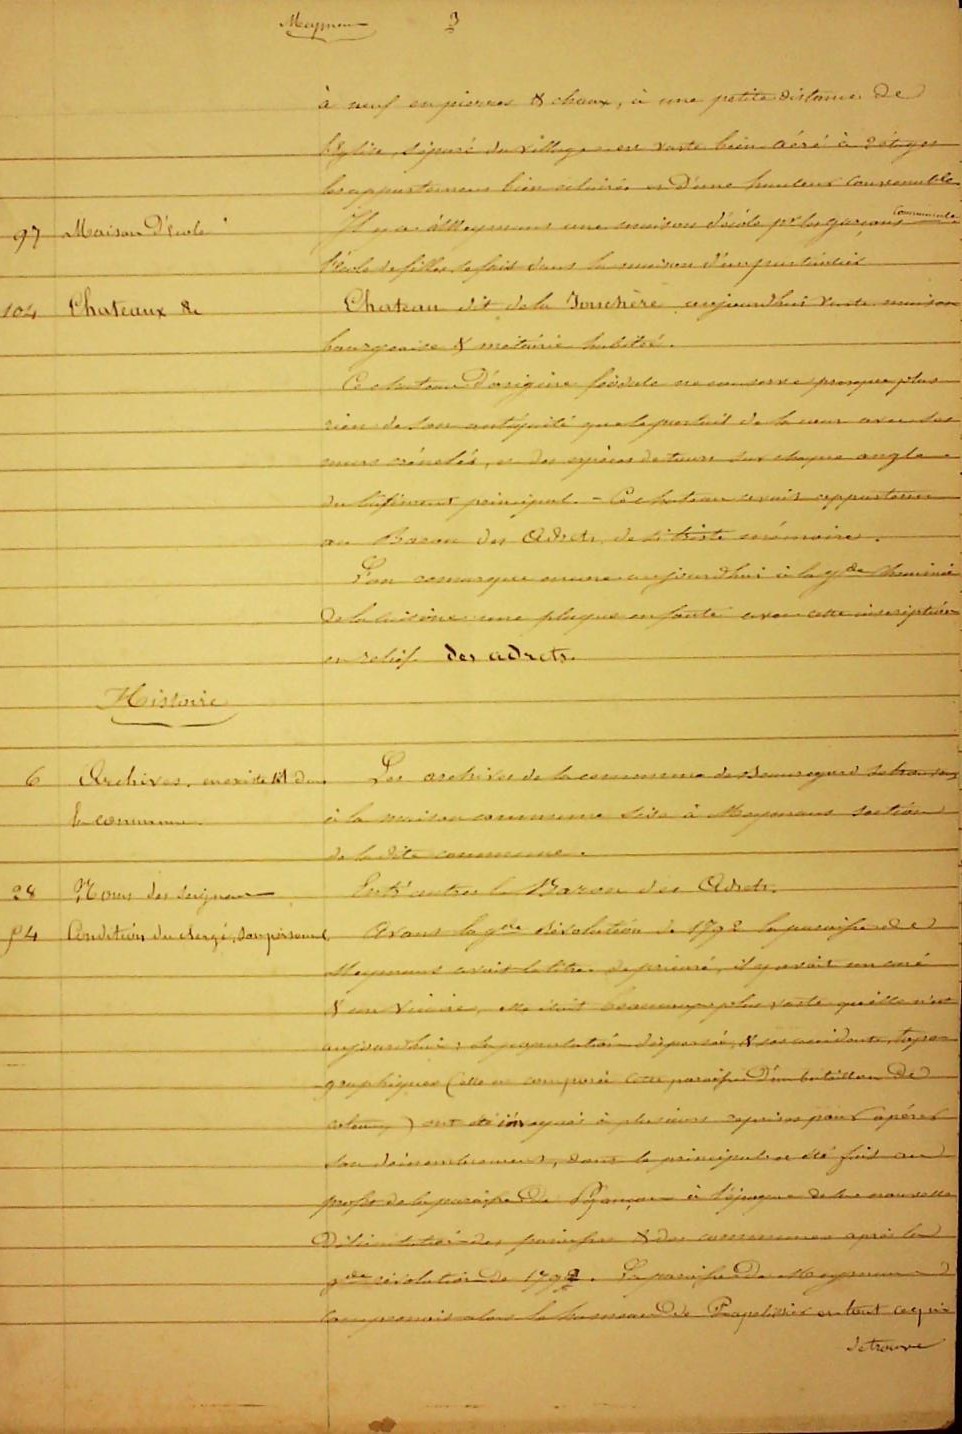 Meymans 3
à neuf en pierres & chaux, à une petite distance de
l'Eglise, séparé du village est vaste bien aéré à 2 étages
les appartemens bien éclairés et d'une hauteur convenable.
97 Maison d'école Il y a à Meymans une maison d'école pr les garçons communale
l'école de filles se fait dans la maison d'un particulier
104 Chateaux & Chateau dit de la Jonchère aujourdhui vaste maison
bourgeoise & métairie habitée.
Ce chateau d'origine féodale ne conserve presque plus
rien de son antiquité que le portail de la cour avec ses
murs crénelés, et des espèces de tours sur chaque angle
du bâtiment principal. - Ce chateau avait appartenu
au Baron des Adrets, de si triste mémoire.
L'on remarque encore aujourdhui à la gde cheminée
de la cuisine une plaque en fonte avec cette inscription
en relief des adrets.
Histoire
6 Archives, en existe-t-il dans Les archives de la commune de Beauregard se trouvent
la commune. à la maison commune sise à Meymans section
de la dite commune.
28 Noms des seigneurs Entr'autres le Baron des Adrets.
54 Condition du clergé, son personnel Avant la gde révolution de 1792 la paroisse de
Meymans avait le titre de prieuré, il y avait un curé
& un vicaire, elle était beaucoup plus vaste qu'elle n'est
aujourdhui : la population dispersée, & ses accidents topo-
graphiques (elle est composée cette paroisse d'un bataillon de
coteaux) ont été invoqués à plusieurs reprises pour opérer
son démembrement, dont le principal a été fait au
profit de la paroisse de à l'époque de la nouvelle
Délimitation des paroisses & des communes après la
gde révolution de 1792. La paroisse de Meymans
comprenait alors le hameau de et tout ce qui
se trouve